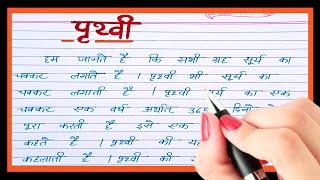 पृथ्वी
हम जानते है कि सभी ग्रह सूर्य का
चक्कर लगाते है । पृथ्वी भी सूर्य का
चक्कर लगाती है । पृथ्वी सूर्य का एक
चक्कर एक वर्ष अर्थात् 365 दिनो
पूरा करती है इसे एक
कहते है । पृथ्वी की
कहलाती है । पृथ्वी की